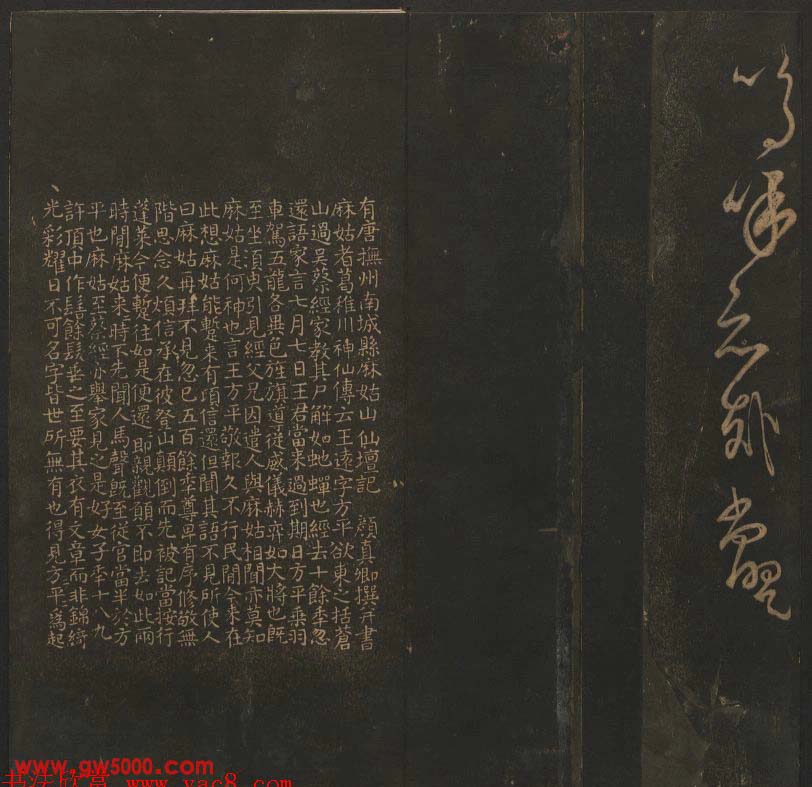 有唐撫州南城縣麻姑山仙壇記　顏真卿撰并書
麻姑者葛稚川神仙傳云王遠字方平欲東之括蒼
山過吳蔡經家教其尸解如虵蟬也經去十餘年忽
還語家言七月七日王君當來過到期日方平乘羽
車駕五龍各異色旌旗導從威儀赫弈如大將也既
至坐須臾引見經父兄因遣人與麻姑相聞亦莫知
麻姑是何神也言王方平敬報久不行民間今來在
此想麻姑能蹔來有頃信還但聞其語不見所使人
曰麻姑再拜不見忽已五百餘年尊卑有序修敬無
階思念久煩信承在彼登山顛倒而先被記當按行
蓬萊今便蹔往如是便還即親觀願不即去如此兩
時間麻姑來時不先聞人馬聲既至從官當半於方
平也麻姑至蔡經亦舉家見之是好女子年十八九
許頂中作髻餘髮垂之至要其衣有文章而非錦綺
光彩耀日不可名字皆世所無有也得見方平為起
www.gw5000.com
书法欣赏 www.yac8.com